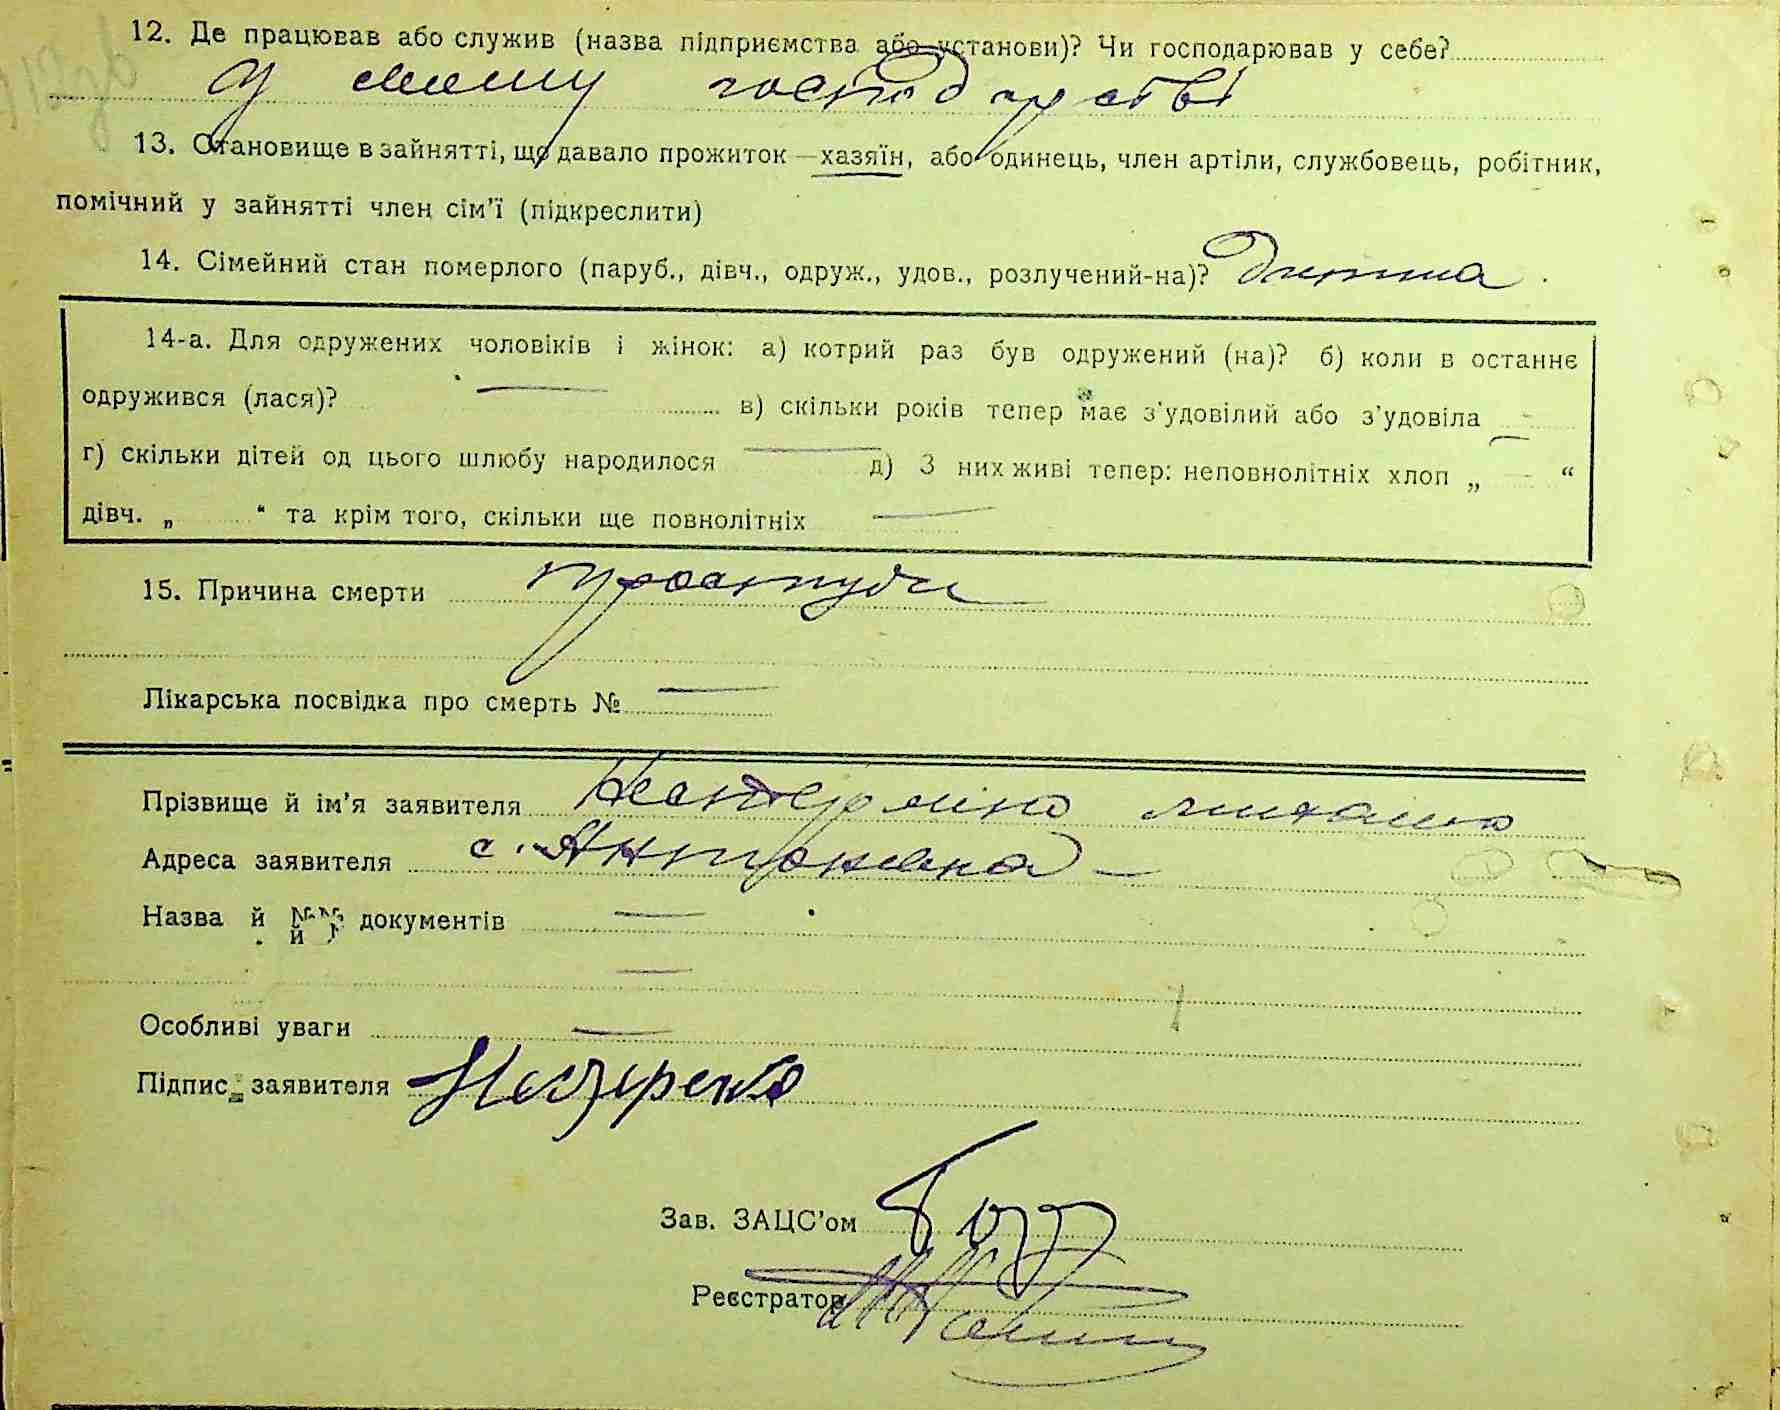 12. Де працював або служив (назва підприємства або установи)? Чи господарював у себе?
У своєму господарстві
13. Становище в зайнятті, що давало прожиток — хазяїн, або одинець, член артіли, службовець, робітник,
помічний у зайнятті член сім'ї (підкреслити)
14. Сімейний стан померлого (паруб., дівч., одруж., удов., розлучений-на)? Дитина.
14-а. Для одружених чоловіків і жінок: а) котрий раз був одружений (на)? б) коли в останнє
одружився (лася)? — в) скільки років тепер має з'удовілий або з'удовіла —
г) скільки дітей од цього шлюбу народилося — д) З них живі тепер: неповнолітніх хлоп „ “
дівч. „ “ та крім того, скільки ще повнолітніх —
15. Причина смерти простуди
Лікарська посвідка про смерть № —
Прізвище й ім'я заявителя Нестеренко
Адреса заявителя с. Антонівка —
Назва й №№ документів —
—
Особливі уваги —
Підпис заявителя Нестеренко
Зав. ЗАЦС'ом
Реєстратор